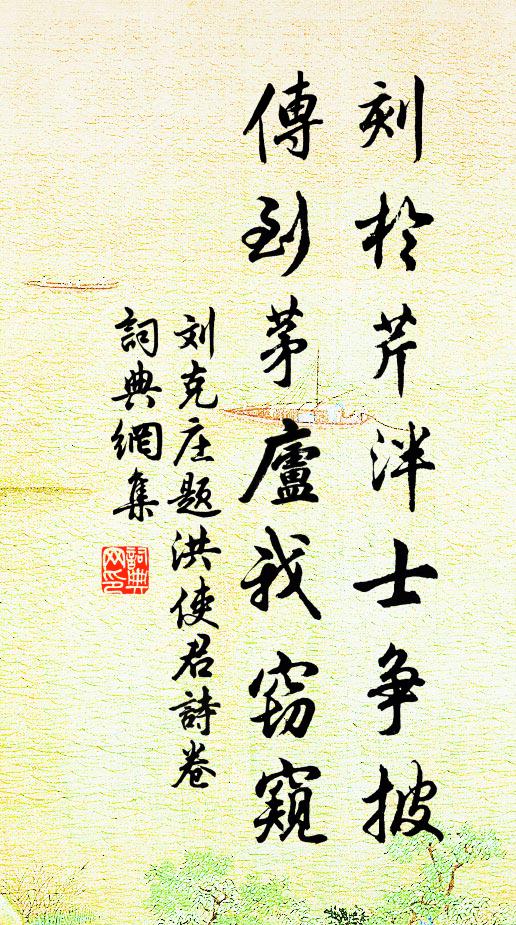 刻於芹泮士争披
傳到茅廬我窃窺
刘克庄題洪使君詩卷
詞典網集
詞典网印